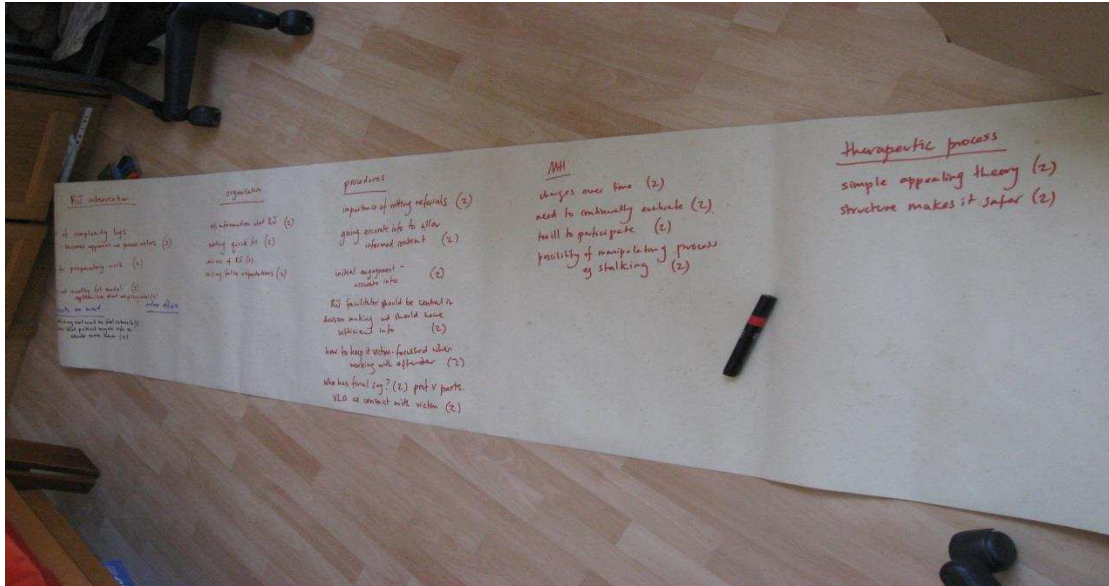 RJ intervention
of complexity high
preparatory work (2)
organisation
what RJ (2)
wanting quick fix (2)
of RJ (2)
raising false expectations (2)
procedures
importance of vetting referrals (2)
giving accurate info to allow
informed consent (2)
initial engagement - (2)
accurate info
RJ facilitator should be central in
decision making and should have
sufficient info (2)
how to keep it victim-focussed when
working with offender (2)
who has final say? (2) prof. v parts.
VLO as contact with victim (2)
MH
changes over time (2)
need to continually evaluate (2)
too ill to participate (2)
possibility of manipulating process
eg stalking (2)
therapeutic process
simple appealing theory (2)
structure makes it safer (2)